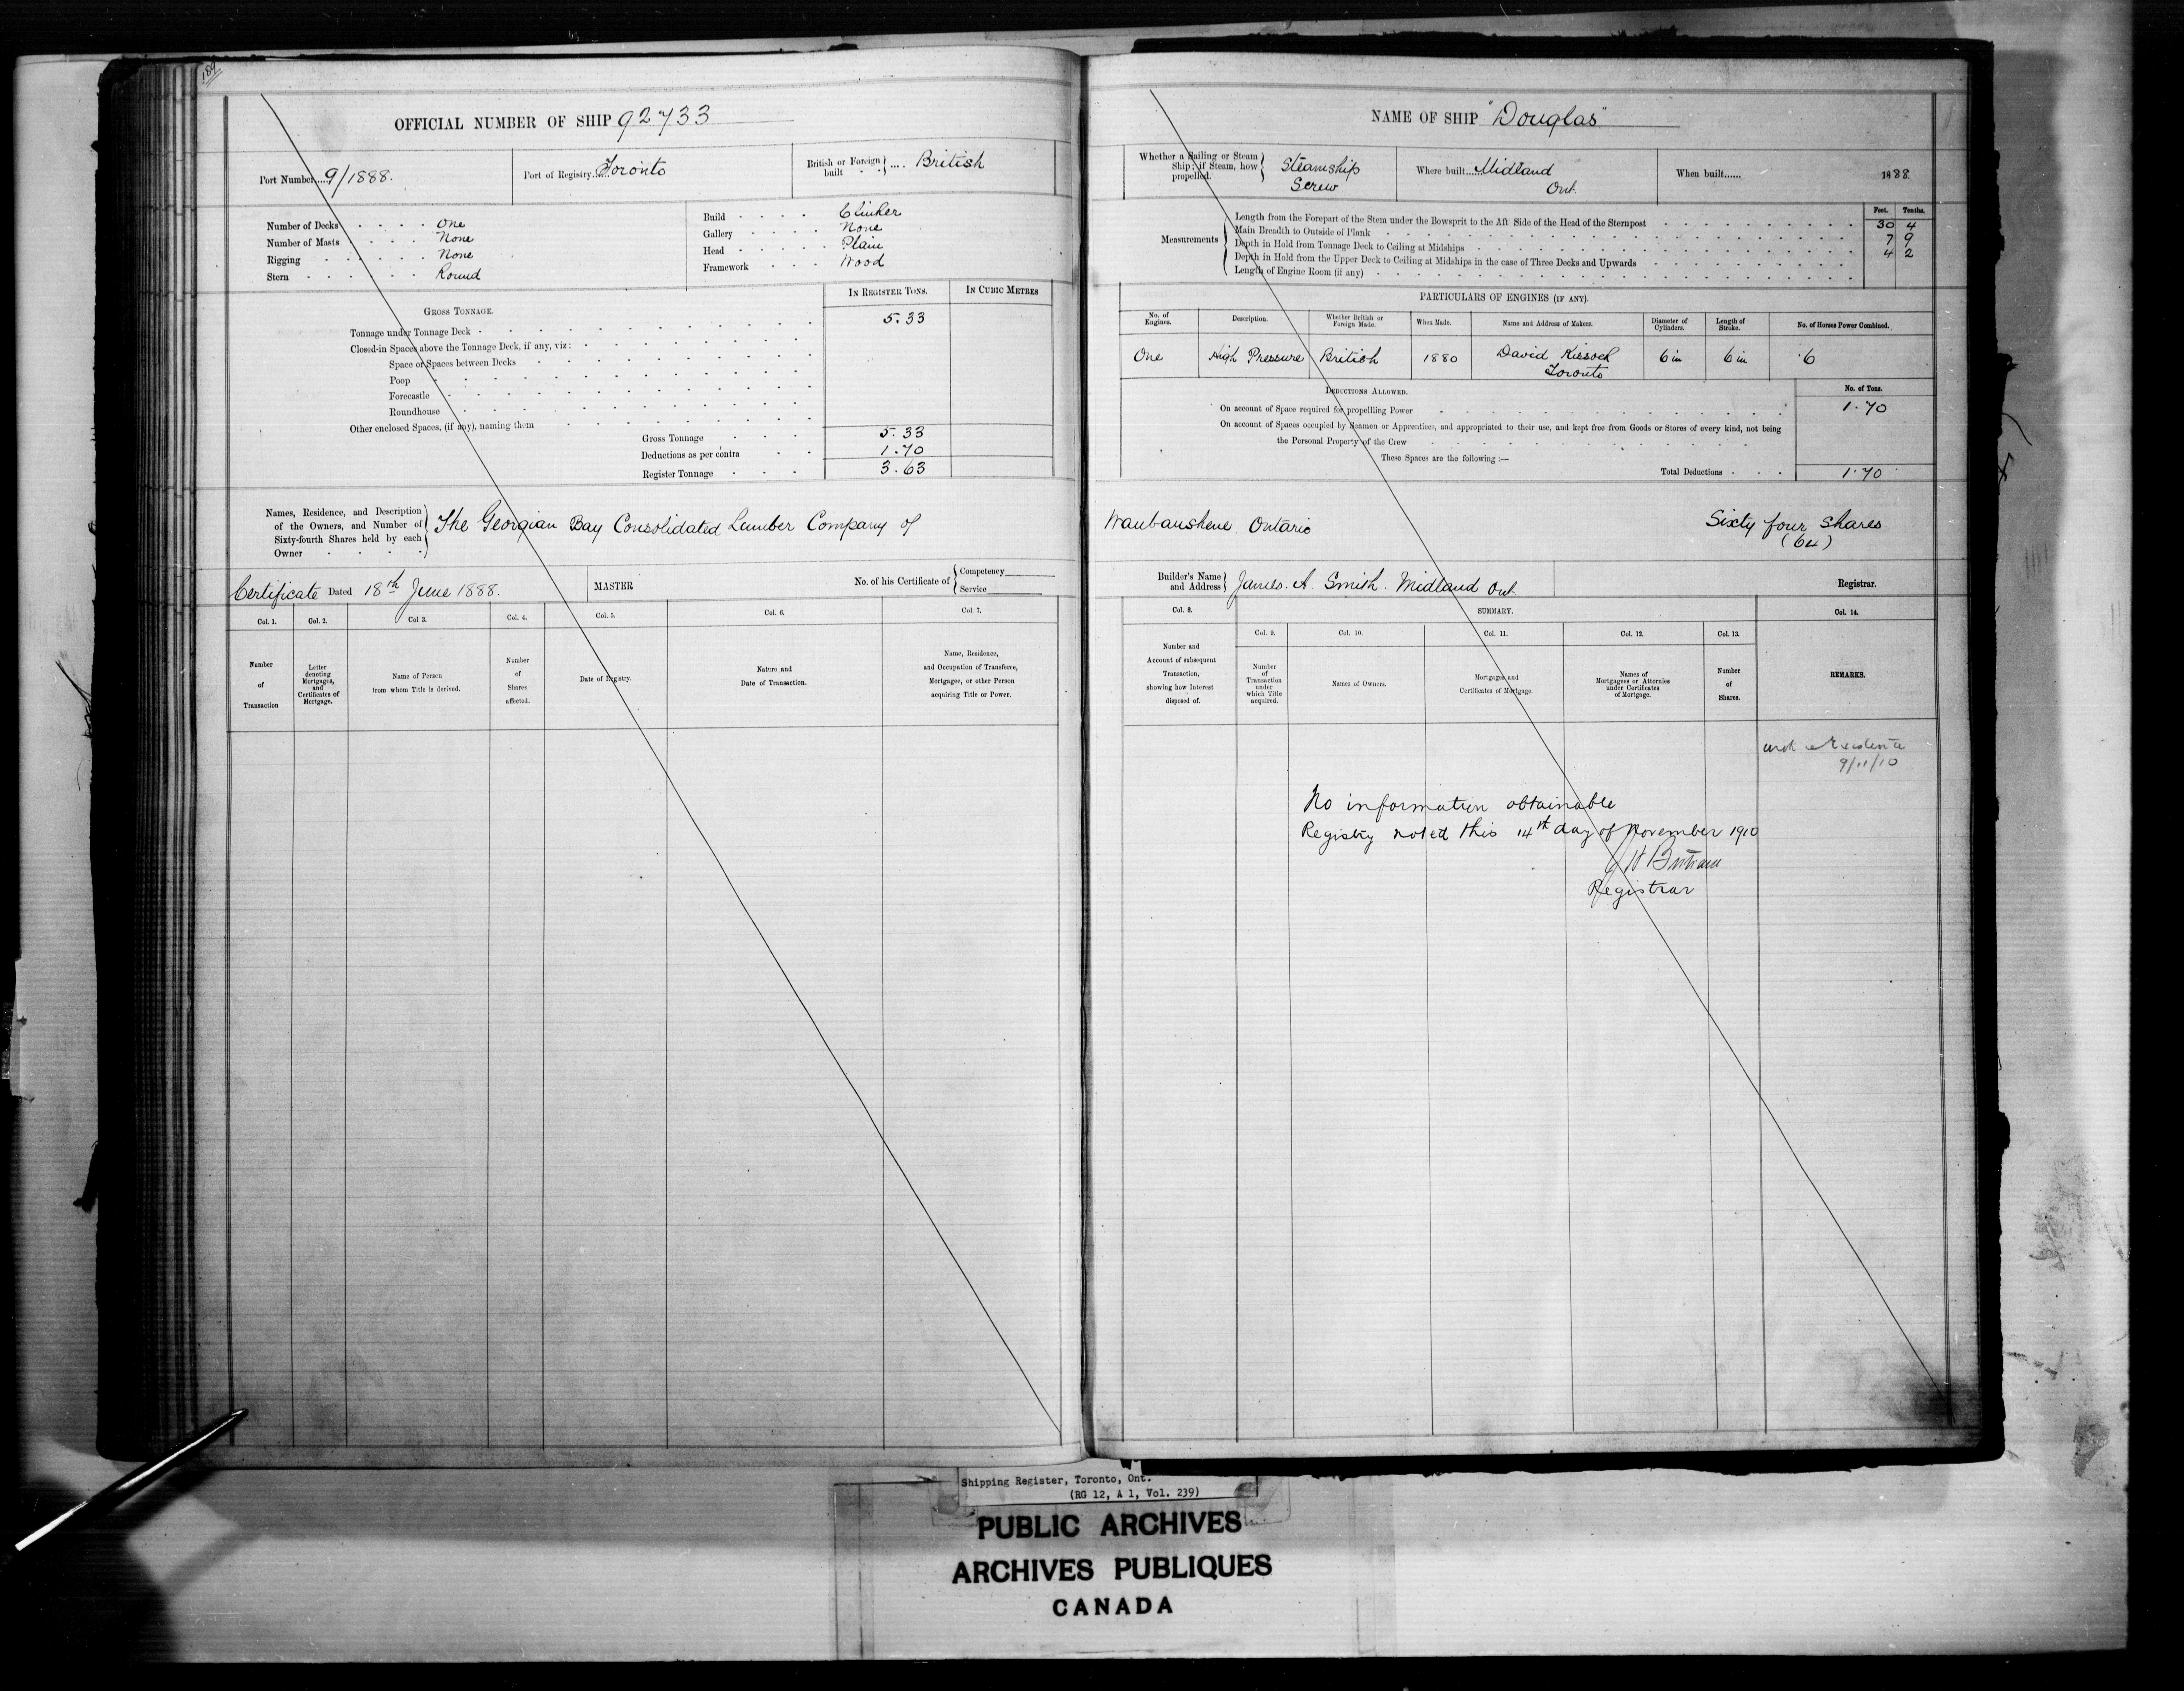 189
OFFICIAL NUMBER OF SHIP 92733
Port Number....9/1888.
Port of Registry....Toronto
British or Foreign built .... British
Number of Decks One
Number of Masts None
Rigging None
Stern Round
Build Clinker
Gallery None
Head Plain
Framework Wood
GROSS TONNAGE.
IN REGISTER TONS. IN CUBIC METRES
Tonnage under Tonnage Deck 5.33
Closed-in Spaces above the Tonnage Deck, if any, viz:
Space or Spaces between Decks
Poop
Forecastle
Roundhouse
Other enclosed Spaces, (if any), naming them
Gross Tonnage 5.33
Deductions as per contra 1.70
Register Tonnage 3.63
Names, Residence, and Description of the Owners, and Number of Sixty-fourth Shares held by each Owner
The Georgian Bay Consolidated Lumber Company of
Certificate Dated 18th June 1888.
MASTER
No. of his Certificate of Competency
Service
Col. 1. Col. 2. Col 3. Col. 4. Col. 5. Col. 6. Col. 7.
Number of Transaction
Letter denoting Mortgages, and Certificates of Mortgage.
Name of Person from whom Title is derived.
Number of Shares affected.
Date of Registry.
Nature and Date of Transaction.
Name, Residence, and Occupation of Transferee, Mortgagee, or other Person acquiring Title or Power.
NAME OF SHIP "Douglas"
Whether a Sailing or Steam Ship; if Steam, how propelled. Steamship Screw
Where built....Midland Ont.
When built...... 1888.
Measurements
Feet. Tenths.
Length from the Forepart of the Stem under the Bowsprit to the Aft Side of the Head of the Sternpost 30 4
Main Breadth to Outside of Plank 7 9
Depth in Hold from Tonnage Deck to Ceiling at Midships 4 2
Depth in Hold from the Upper Deck to Ceiling at Midships in the case of Three Decks and Upwards
Length of Engine Room (if any)
PARTICULARS OF ENGINES (IF ANY).
No. of Engines. Description. Whether British or Foreign Made. When Made. Name and Address of Makers. Diameter of Cylinders. Length of Stroke. No. of Horses Power Combined.
One High Pressure British 1880 David Toronto 6 in 6 in .6
DEDUCTIONS ALLOWED. No. of Tons.
On account of Space required for propelling Power 1.70
On account of Spaces occupied by Seamen or Apprentices, and appropriated to their use, and kept free from Goods or Stores of every kind, not being
the Personal Property of the Crew
These Spaces are the following :—
Total Deductions 1.70
Waubaushene Ontario Sixty four Shares
(64)
Builder's Name and Address James. A. Smith. Midland Ont.
Registrar.
Col. 8. SUMMARY. Col. 14.
Col. 9. Col. 10. Col. 11. Col. 12. Col. 13.
Number and Account of subsequent Transaction, showing how Interest disposed of.
Number of Transaction under which Title acquired.
Names of Owners.
Mortgages and Certificates of Mortgage.
Names of Mortgagees or Attornies under Certificates of Mortgage.
Number of Shares.
REMARKS.
9/11/10
No information obtainable
Registry noted this 14th day of November 1910
Registrar
Shipping Register, Toronto, Ont.
(RG 12, A 1, Vol. 239)
PUBLIC ARCHIVES
ARCHIVES PUBLIQUES
CANADA